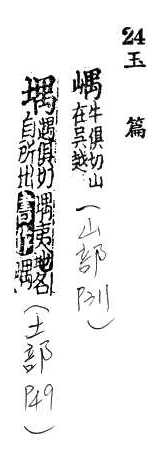 24
玉篇
嵎 牛俱切山
在吳越 (山部)
堣 遇俱切嵎夷地名
日所出書作嵎 (土部 P49)